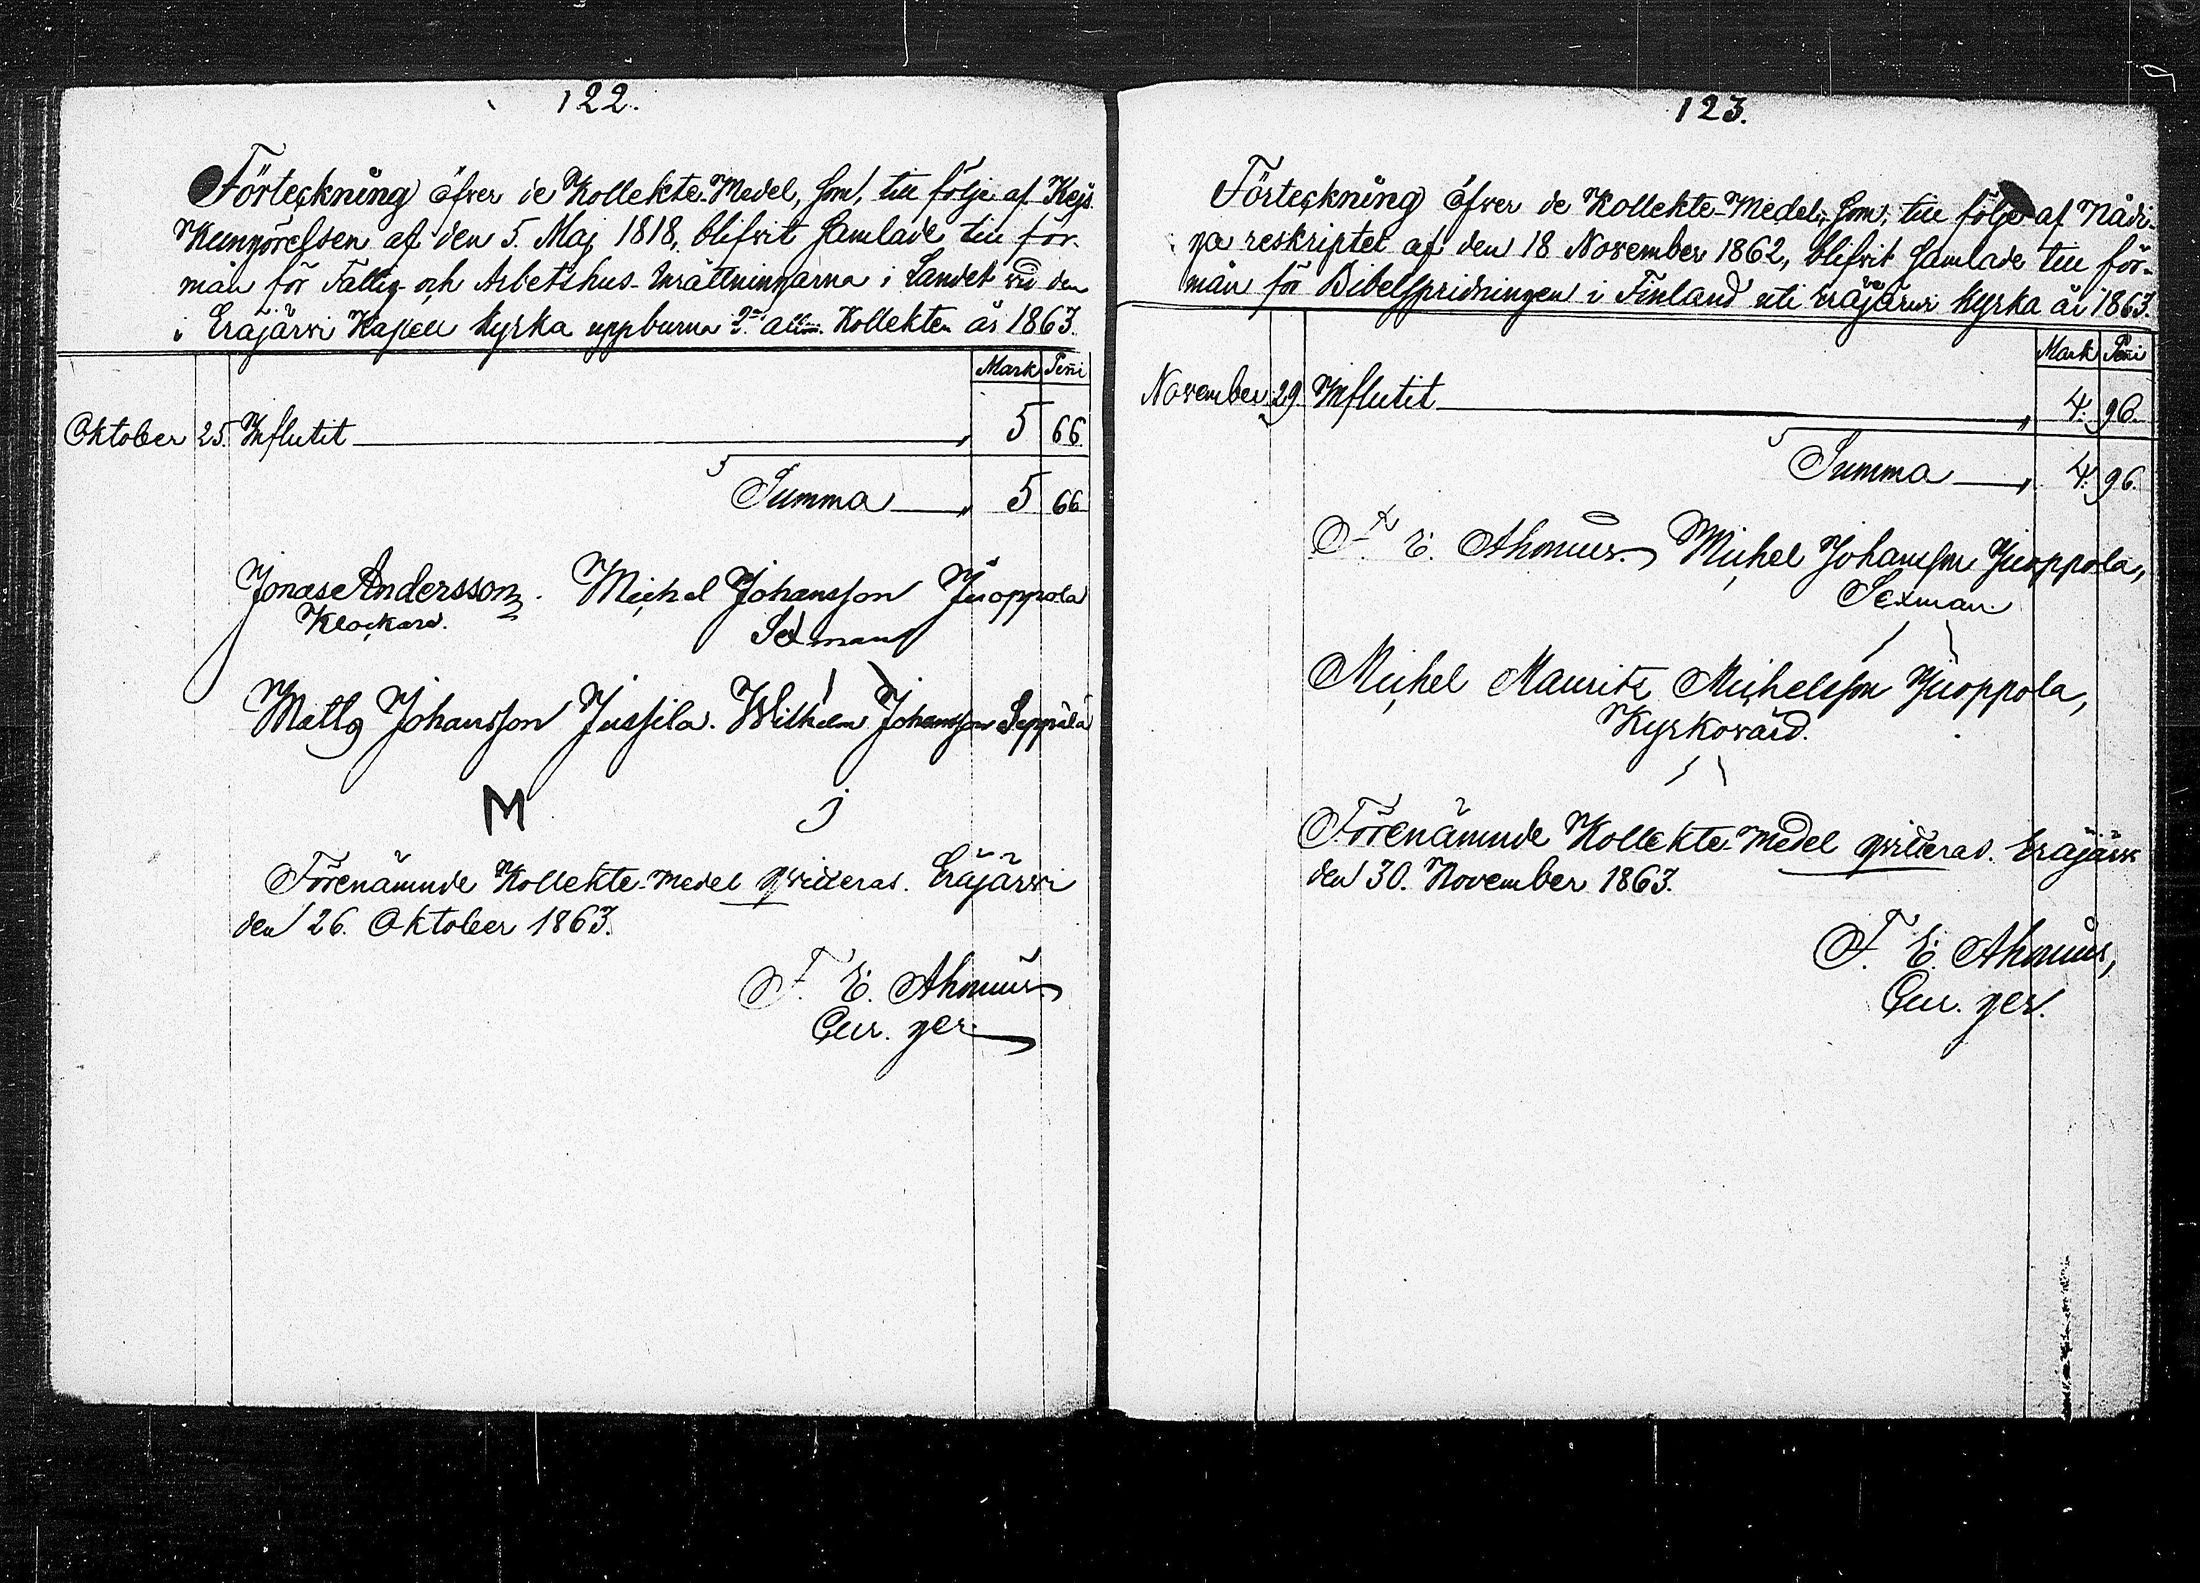 122.
Förteckning öfver de Kollekte-Medel, som, till följe af Kejs.
Kungörelsen af den 5. Maj 1818, blifvit samlade till för-
mån för Fattig- och Arbetshus-Inrättningarna i Landet vid den
i Eräjärvi Kapell kyrka uppburna 2:a allm. Kollekten år 1863.
Mark Penni
Oktober 25. Influtit 5 66.
Summa 5 66
Jonas Andersson. Michel Johansson Juoppola
Klockare. Sexman
Matts Johansson Jussila. Wilhelm Johansson Seppälä
M J
Förenämnde Kollekte-Medel qvitteras. Eräjärvi
den 26. Oktober 1863.
F. E. Ahonius.
Cur. ger.
123.
Förteckning öfver de Kollekte-Medel, som, till följe af Nådi-
ga reskriptet af den 18 November 1862, blifvit samlade till för-
mån för Bibelspridningen i Finland uti Eräjärvi kyrka år 1863.
Mark Penni
November 29. Influtit 4. 96.
Summa 4. 96.
F. E. Ahonius. Michel Johansson Juoppola,
Sexman.
Michel Mauritz Michelsson Juoppola,
Kyrkovärd.
Förenämnde Kollekte-Medel qvitteras. Eräjärvi
den 30. November 1863.
F. E. Ahonius,
Cur. ger.